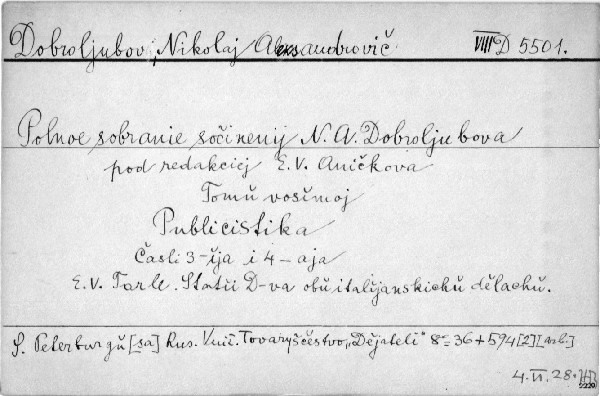 Dobroljubov, Nikolaj Aleksandrovič VIII D 5501.
Polnoe sobranie sočinenij N. A. Dobroljubova
pod redakciej E. V. Aničkova
Tomŭ vosĭmoj
Publicistika
Časti 3-ĭja i 4-aja
E. V. Tarle. Statii D-va obŭ italijanskichŭ dělachŭ.
S. Peterburgŭ [sa] Rus. Knit. Tovaryščestvo „Dějateli" 8° 36+594 [2]
4. VI. 28.